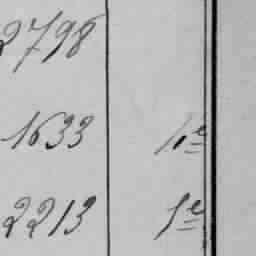 2798
1633 1e
2213 1e